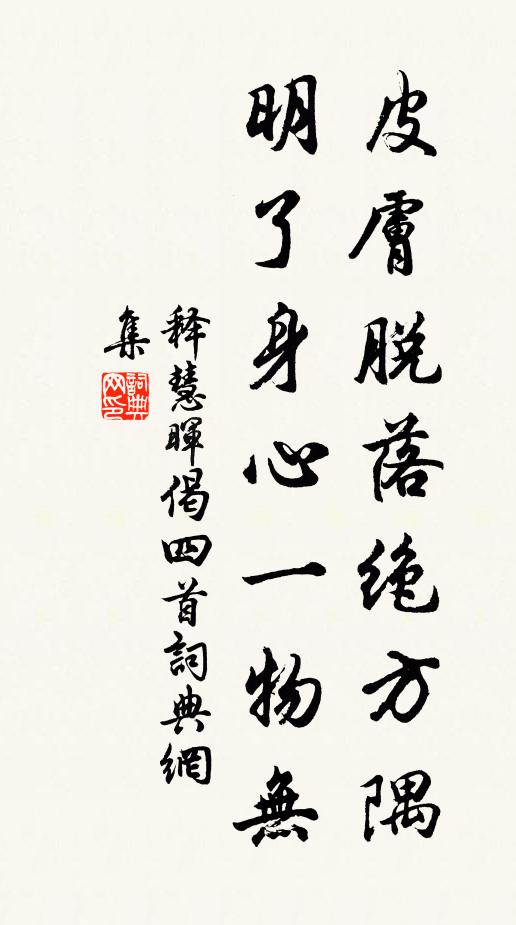 皮膚脱落絶方隅
明了身心一物無
释慧暉偈四首詞典網
集
詞典
网印